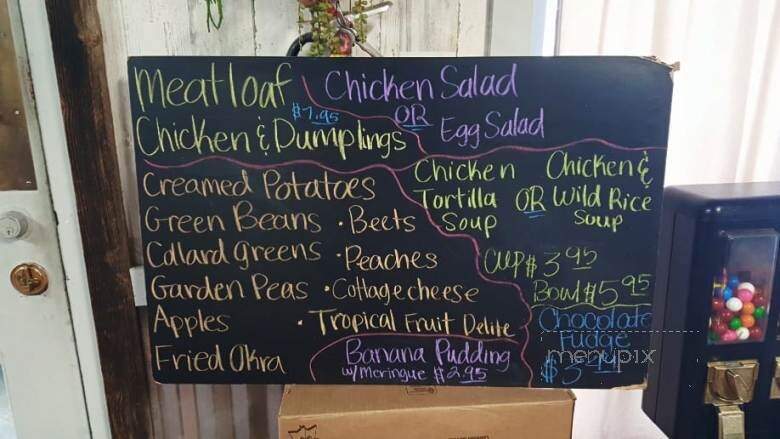 Meatloaf
$7.95
Chicken & Dumplings
Chicken Salad
OR
Egg Salad
Creamed Potatoes
Green Beans · Beets
Collard greens · Peaches
Garden Peas · Cottage cheese
Apples · Tropical Fruit Delite
Fried Okra
Chicken Tortilla Soup
OR
Chicken & Wild Rice Soup
Cup $3.95
Bowl $5.95
Banana Pudding
w/meringue $2.95
Chocolate
Fudge
menupix